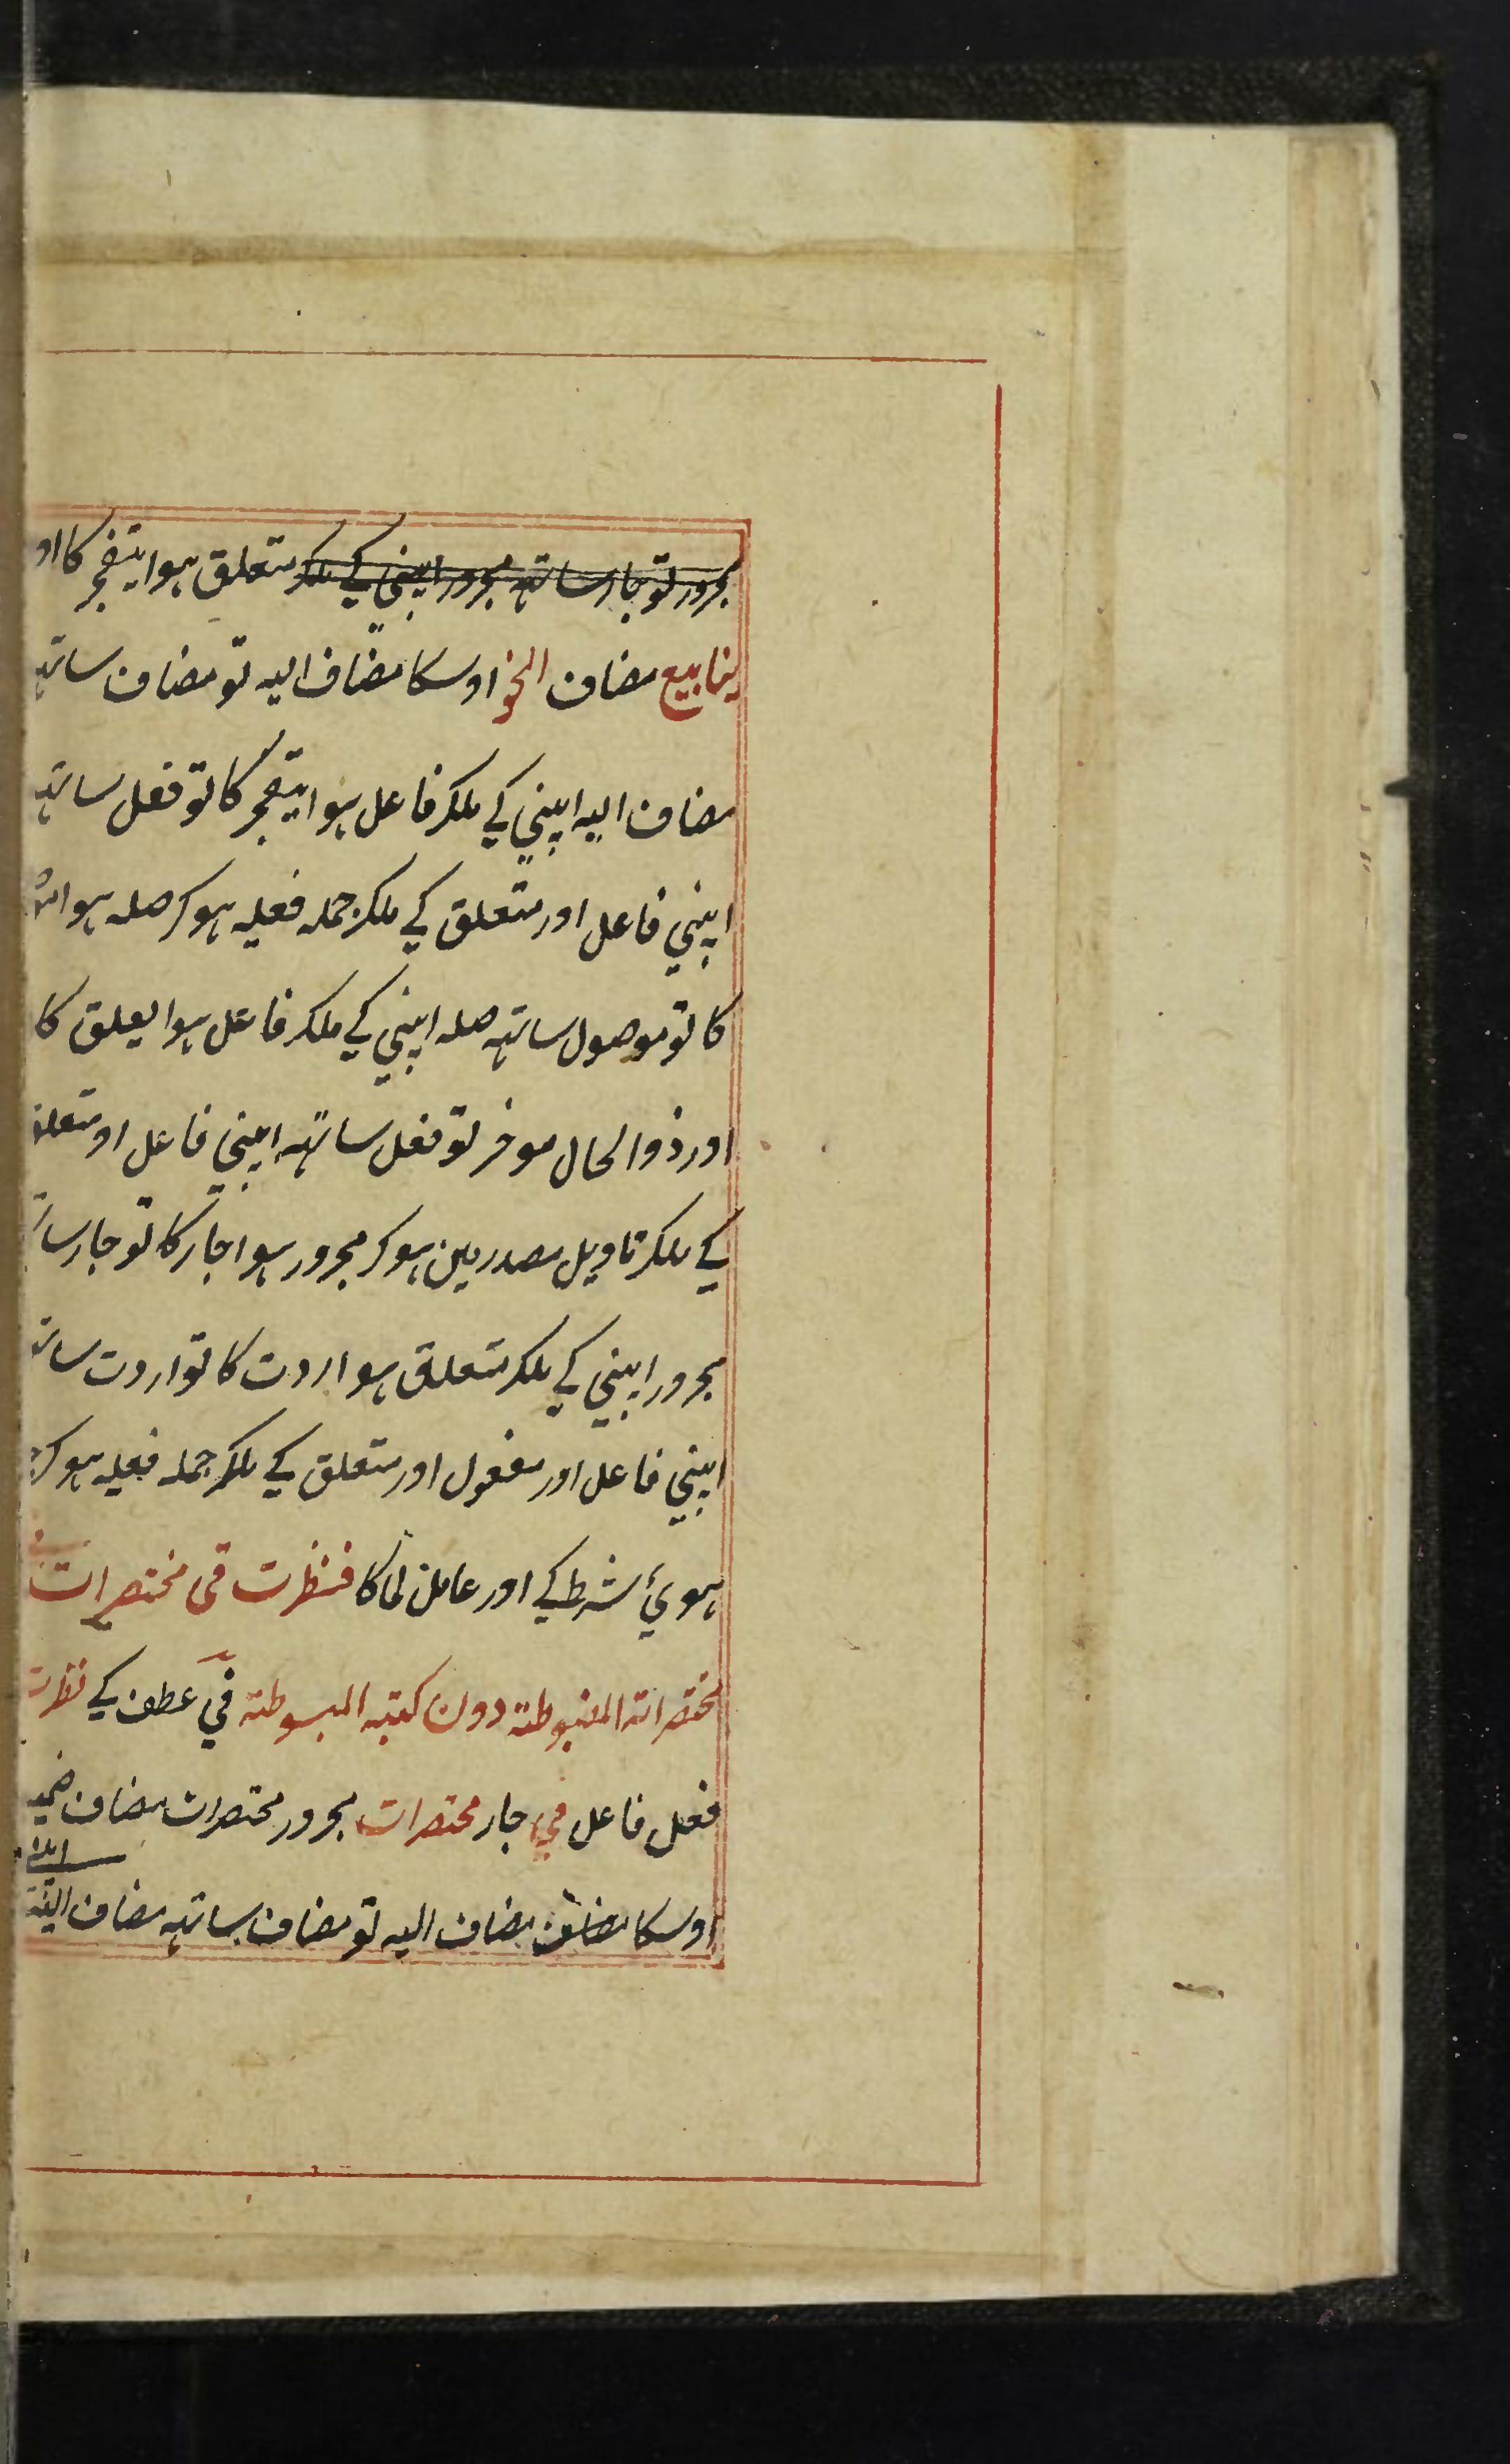 مجرور تو جار ساتهہ مجرور اپنی کے ملکر متعلق ہوا یتفجر کا او
ینابیع مضاف النحو اوسکا مضاف الیہ تو مضاف ساتهہ
مضاف الیہ اپنی کے ملکر فاعل ہوا یتفجر کا تو فعل ساتهہ
اپنی فاعل اور متعلق کے ملکر جملہ فعلیہ ہوکر صلہ ہوا
کا تو موصول ساتهہ صلہ اپنی کے ملکر فاعل ہوا یعلق کا
اور ذوالحال موخر تو فعل ساتهہ اپنی فاعل او متعلق
کے ملکر تاویل مصدر مین ہوکر مجرور ہوا جار کا تو جار سا
مجرور اپنی کے ملکر متعلق ہوا اردت کا تو اردت سات
اپنی فاعل اور مفعول اور متعلق کے ملکر جملہ فعلیہ ہوکر
ہوئ شرط کے اور عامل لما کا فنظرت فی مختصرات
مختصراتہ المضبوطتہ دون کتبہ المبسوطتہ فی عطف کے نظرت
فعل فاعل فی جار مختصرات مجرور مختصرات مضاف ضمیر
اوسکا مضاف مضاف الیہ تو مضاف ساتهہ مضاف الیہ